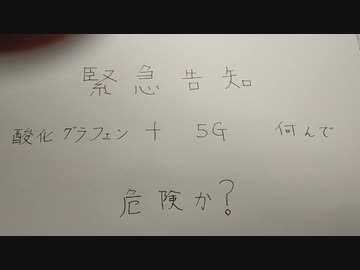 緊急告知
酸化グラフェン + 5G 何んで
危険か?